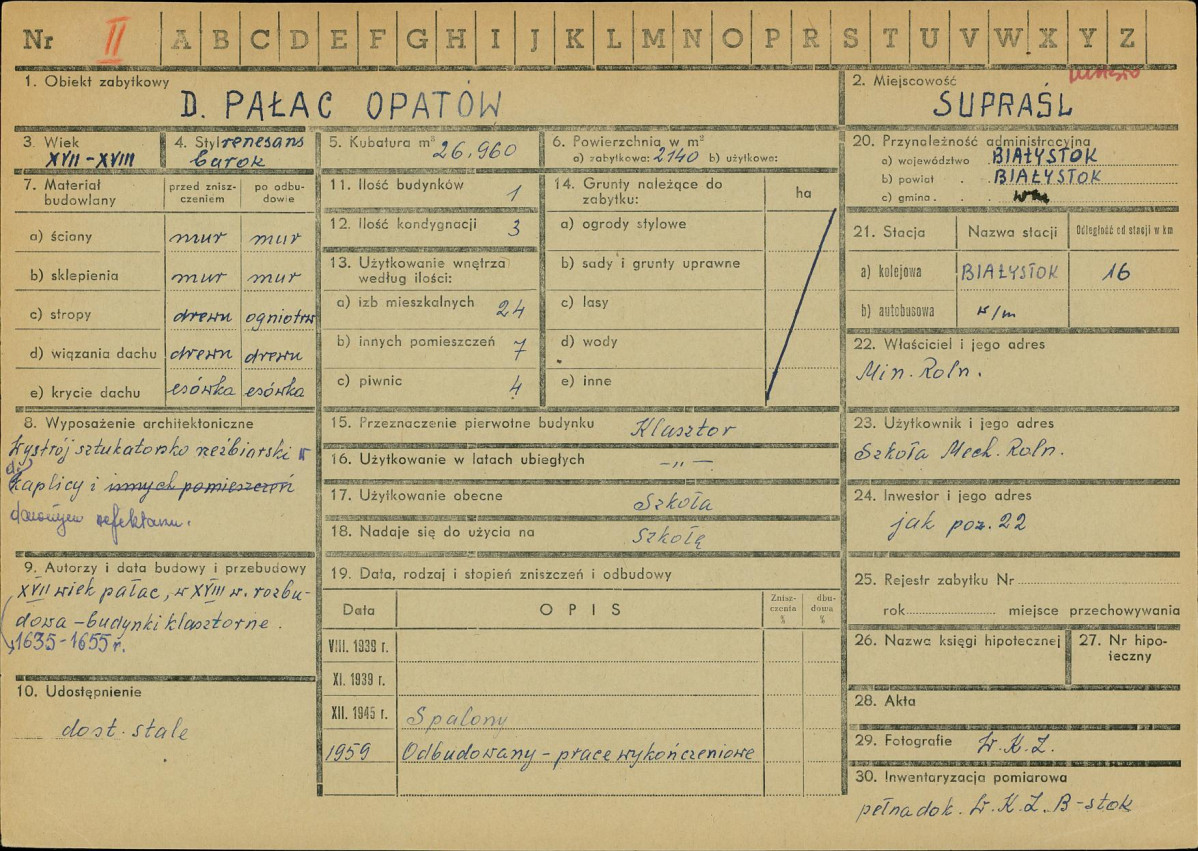 Nr II A B C D E F G H I J K L M N O P R S T U V W X Y Z
1. Obiekt zabytkowy
D. PAŁAC OPATÓW
2. Miejscowość
miasto
SUPRAŚL
3. Wiek
XVII-XVIII
4. Styl renesans
barok
5. Kubatura m³ 26.960
6. Powierzchnia w m²
a) zabytkowa: 2140 b) użytkowa:
20. Przynależność administracyjna
a) województwo BIAŁYSTOK
b) powiat . BIAŁYSTOK
c) gmina . . .
7. Materiał budowlany
przed znisz-
czeniem
po odbu-
dowie
a) ściany mur mur
b) sklepienia mur mur
c) stropy drewn ogniotrw
d) wiązania dachu drewn drewn
e) krycie dachu esówka esówka
11. Ilość budynków 1
12. Ilość kondygnacji 3
13. Użytkowanie wnętrza
według ilości:
a) izb mieszkalnych 24
b) innych pomieszczeń 7
c) piwnic 4
14. Grunty należące do
zabytku:
ha
a) ogrody stylowe
b) sady i grunty uprawne
c) lasy
d) wody
e) inne
21. Stacja Nazwa stacji Odległość od stacji w km
a) kolejowa BIAŁYSTOK 16
b) autobusowa w/m
22. Właściciel i jego adres
Min. Roln.
8. Wyposażenie architektoniczne
Wystrój sztukatorsko rzeźbiarski w
kaplicy i innych pomieszczeń
dawnym refektarzu.
15. Przeznaczenie pierwotne budynku Klasztor
16. Użytkowanie w latach ubiegłych —„—
17. Użytkowanie obecne Szkoła
18. Nadaje się do użycia na szkołę
23. Użytkownik i jego adres
Szkoła Mech. Roln.
24. Inwestor i jego adres
jak poz. 22
9. Autorzy i data budowy i przebudowy
XVII wiek pałac, w XVIII w. rozbu-
dowa - budynki klasztorne.
1635-1655 r.
10. Udostępnienie
dost. stale
19. Data, rodzaj i stopień zniszczeń i odbudowy
Data OPIS
Znisz-
czenia
%
dbu-
dowa
%
VIII. 1939 r.
XI. 1939 r.
XII. 1945 r. Spalony
1959 Odbudowany - prace wykończeniowe
25. Rejestr zabytku Nr
rok miejsce przechowywania
26. Nazwa księgi hipotecznej
27. Nr hipo-
teczny
28. Akta
29. Fotografie W.K.Z.
30. Inwentaryzacja pomiarowa
pełna dok. W.K.Z. B-stok